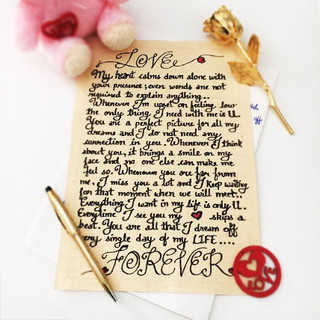 LOVE
My heart calms down alone with
your presence; even words are not
required to explain anything...
Whenever I'm upset or feeling low
the only thing I need with me is U.
You are a perfect picture for all my
dreams and I do not need any
correction in you. Whenever I think
about you, it brings a smile on my
face and no one else can make me
feel so. Whenever you are far from
me, I miss you a lot and I keep waiting
for that moment when we will meet..
Everything I want in my life is only U.
Everytime I see you my skips a
beat. You are all that I dream off
every single day of my LIFE....
FOREVER
LOVE